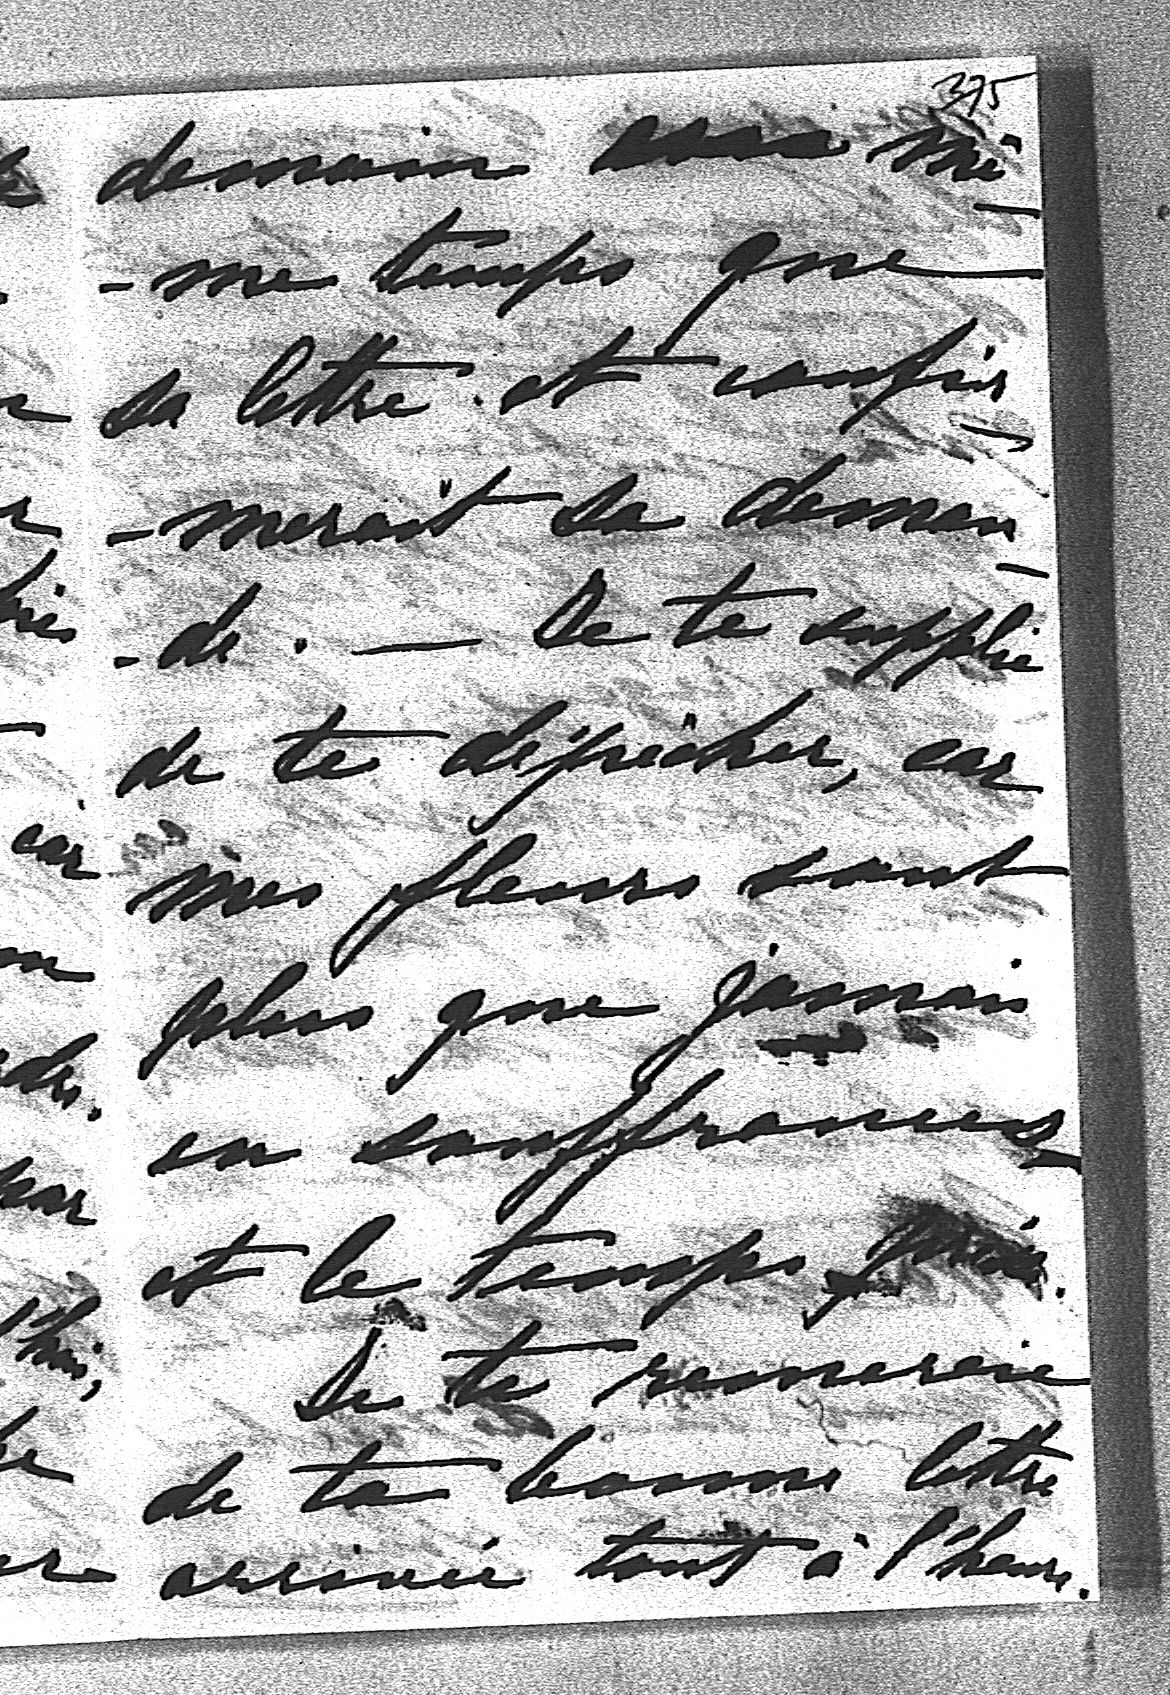 375
demain mê-
-me temps que
sa lettre et confir-
-merait sa deman-
-de. — Je te supplie
de te dépêcher, car
mes fleurs sont
plus que jamais
en souffrances
et le temps
Je te remercie
de ta bonne lettre
arrivée tout à l'heure.